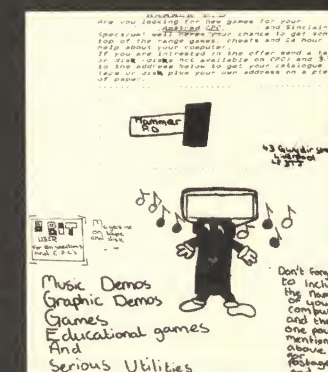 HAMMER P.D
Are you looking for new games for your
Amstrad CPC and Sinclair
Spectrum well heres your chance to get some
top of the range games, cheats and 24 hour
help about your computer
If you are intrested in the offer send a tape
or disk
to the address below to get your catalogue
tape or disk plus your own address on a piece
of paper.
Hammer
P.D
43
Liverpool
8 BIT
USER
for all spectrums
And C.P.C's
Magazine
on tape
and disk
Music Demos
Graphic Demos
Games
Educational games
And
Serious Utilities
Don't
to inclu
the
of you
comput
and th
one pou
mention
above
for
Postage